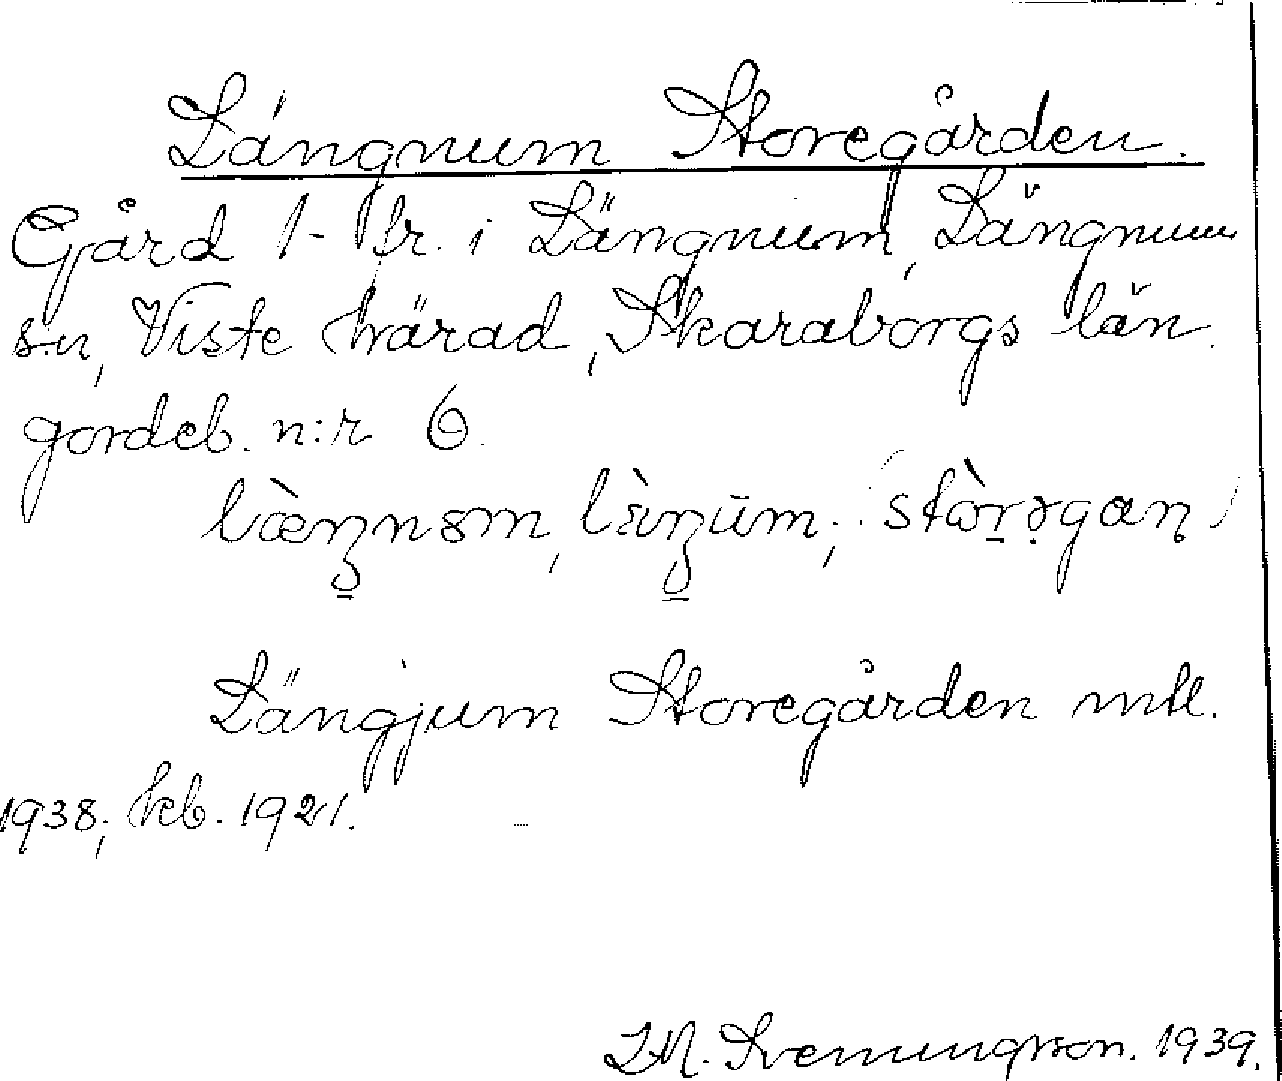 Längnum Storegården.
Gård 1- br. i Längnum, Längnum
s:n, Viste härad, Skaraborgs län.
jordeb. n:r 6.
stòrəgaɳ
Längjum Storegården mtl.
1938; kb. 1921.
Svenungsson. 1939.